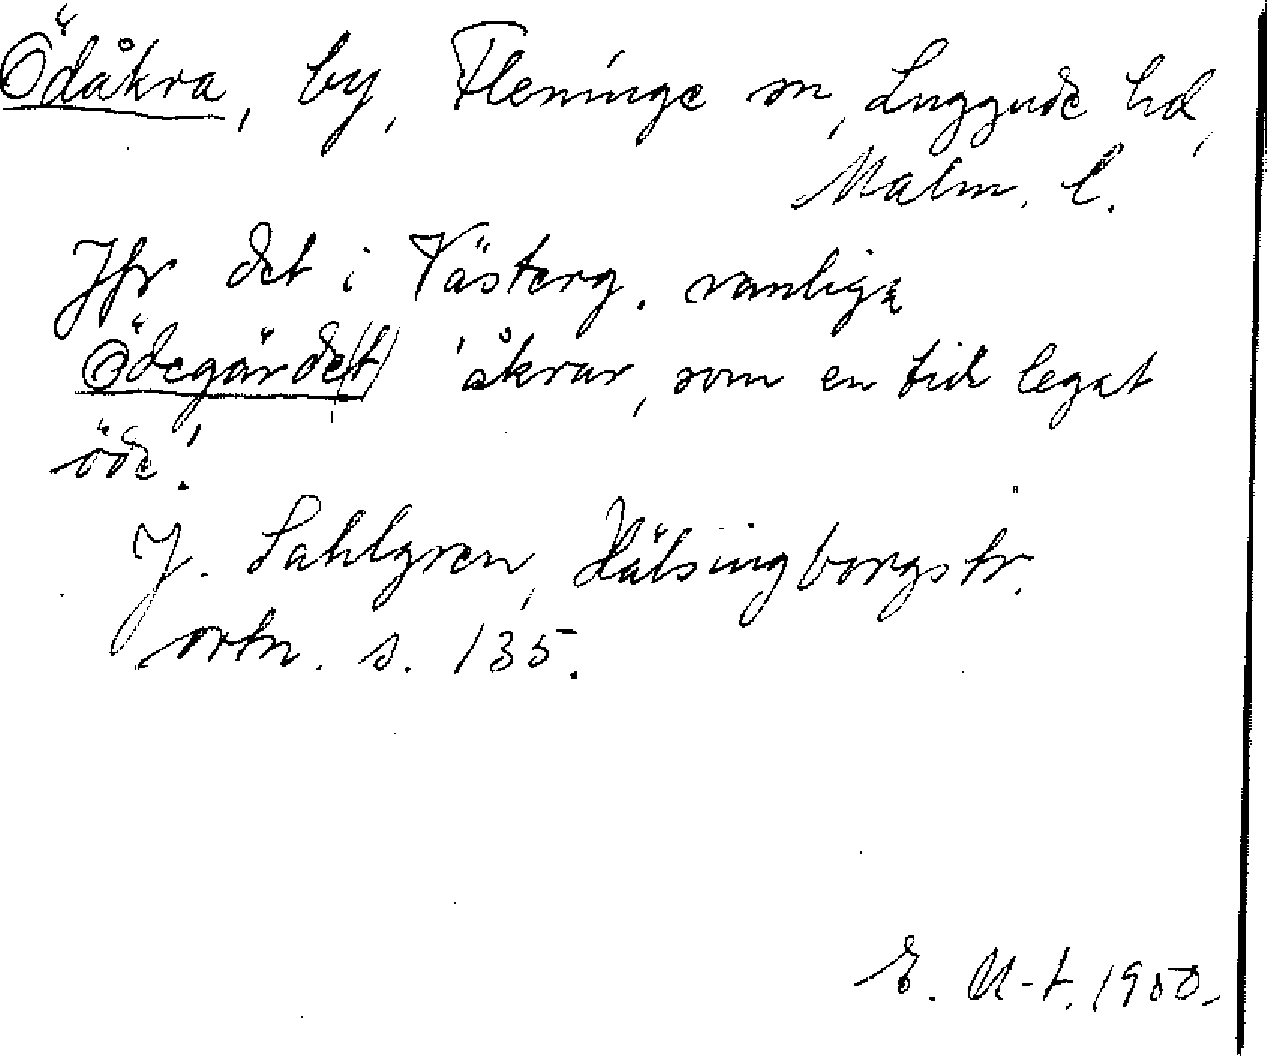 Ödåkra, by, Fleninge sn, Luggude hd,
Malm. l.
Jfr det i Västerg. vanliga
Ödegärde(t) 'åkrar, som en tid legat
öde'.
J. Sahlgren, Hälsingborgstr.
ortn. s. 135.
E. M-t. 1950.